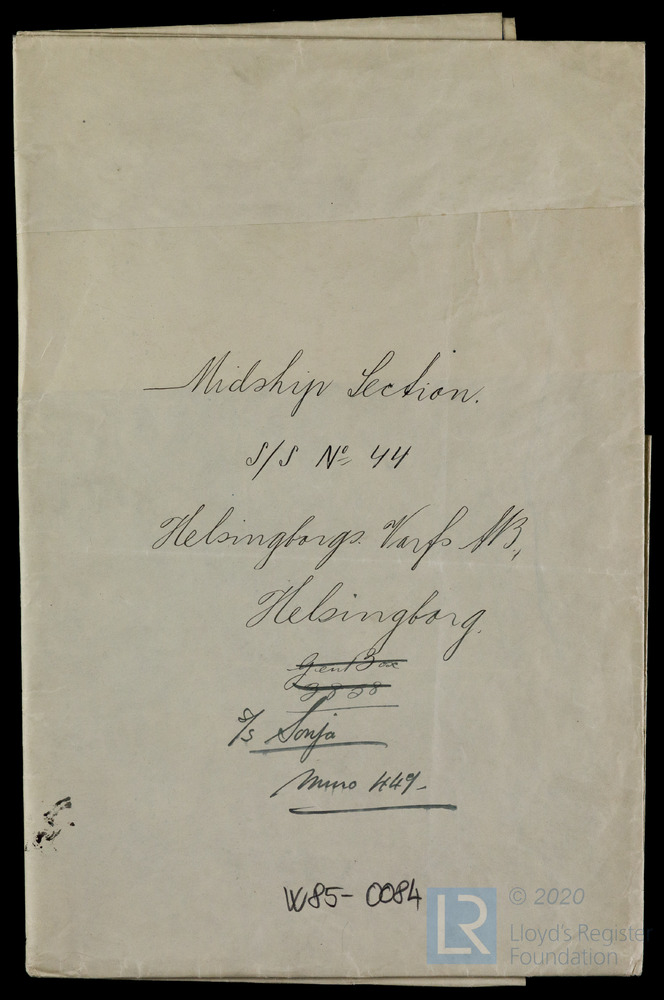 Midship Section.
S/S No 44
Helsingborgs Varfs AB,
Helsingborg.
Gen Box
S/s Sonja
W85-0084
LR
© 2020
Lloyd's Register
Foundation